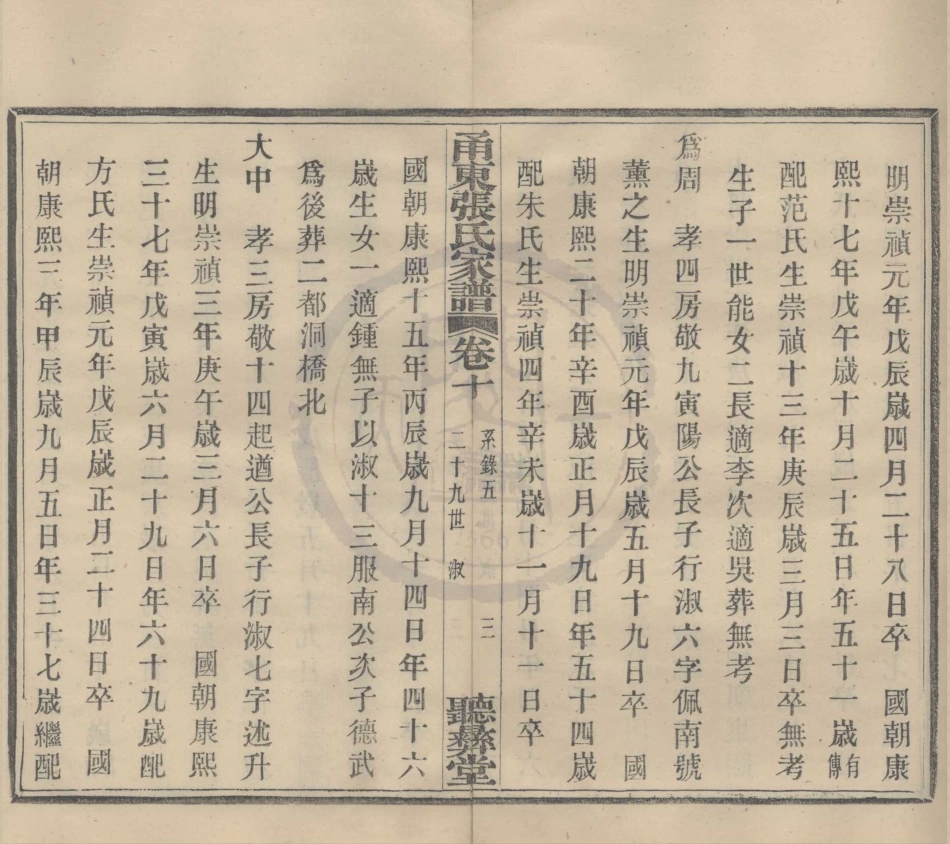 明崇禎元年戊辰歲四月二十八日卒　國朝康
熙十七年戊午歲十月二十五日年五十一歲有傳
配范氏生崇禎十三年庚辰歲三月三日卒無考
生子一世能女二長適李次適吳葬無考
爲周　孝四房敬九寅陽公長子行淑六字佩南號
薰之生明崇禎元年戊辰歲五月十九日卒　國
朝康熙二十年辛酉歲正月十九日年五十四歲
配朱氏生崇禎四年辛未歲十一月十一日卒
甬東張氏家譜　卷十　系錄五　二十九世　淑　三　聽彝堂
國朝康熙十五年丙辰歲九月十四日年四十六
歲生女一適鍾無子以淑十三服南公次子德武
爲後葬二都洞橋北
大中　孝三房敬十四起遒公長子行淑七字述升
生明崇禎三年庚午歲三月六日卒　國朝康熙
三十七年戊寅歲六月二十九日年六十九歲配
方氏生崇禎元年戊辰歲正月二十四日卒　國
朝康熙三年甲辰歲九月五日年三十七歲繼配